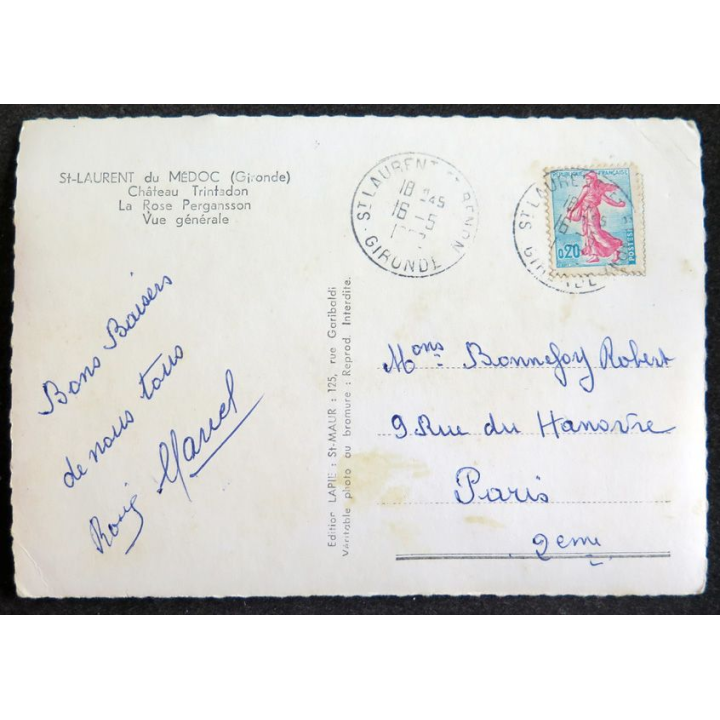 St-LAURENT du MÉDOC (Gironde)
Château Trintadon
La Rose Pergansson
Vue générale
Bons Baisers
de nous tous
ST LAURENT ET BENON
18 45
16 -5
GIRONDE
REPUBLIQUE FRANÇAISE
0,20
POSTES
ST LAURE
GIRONDE
Edition LAPIE : St-MAUR : 125, rue Garibaldi
Véritable photo au bromure : Reprod. Interdite.
Mons: Bonnefoy Robert
9 Rue du Hanovre
Paris
2eme